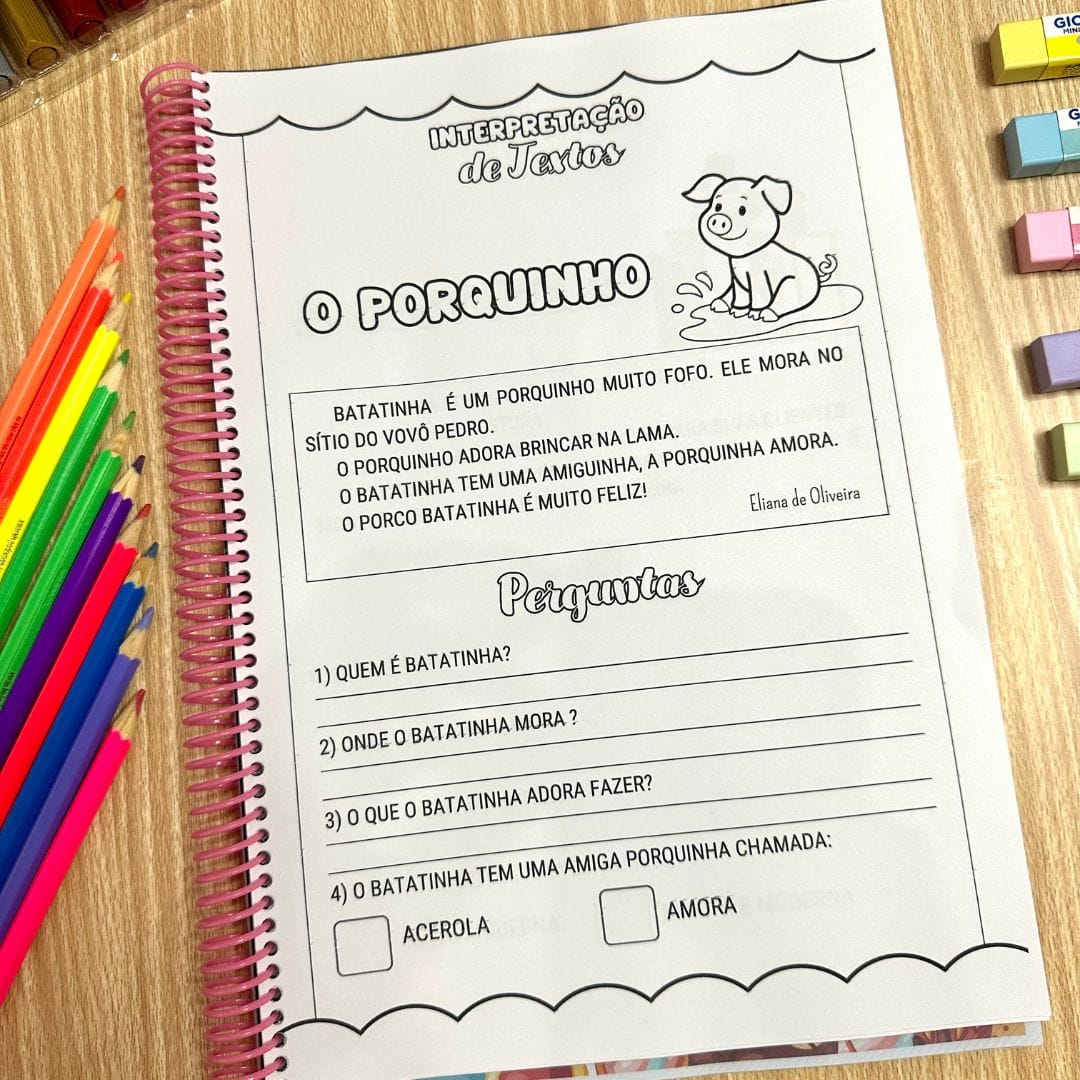 INTERPRETAÇÃO
de Textos
O PORQUINHO
BATATINHA É UM PORQUINHO MUITO FOFO. ELE MORA NO
SÍTIO DO VOVÔ PEDRO.
O PORQUINHO ADORA BRINCAR NA LAMA.
O BATATINHA TEM UMA AMIGUINHA, A PORQUINHA AMORA.
O PORCO BATATINHA É MUITO FELIZ!
Eliana de Oliveira
Perguntas
1) QUEM É BATATINHA?
2) ONDE O BATATINHA MORA ?
3) O QUE O BATATINHA ADORA FAZER?
4) O BATATINHA TEM UMA AMIGA PORQUINHA CHAMADA:
ACEROLA
AMORA